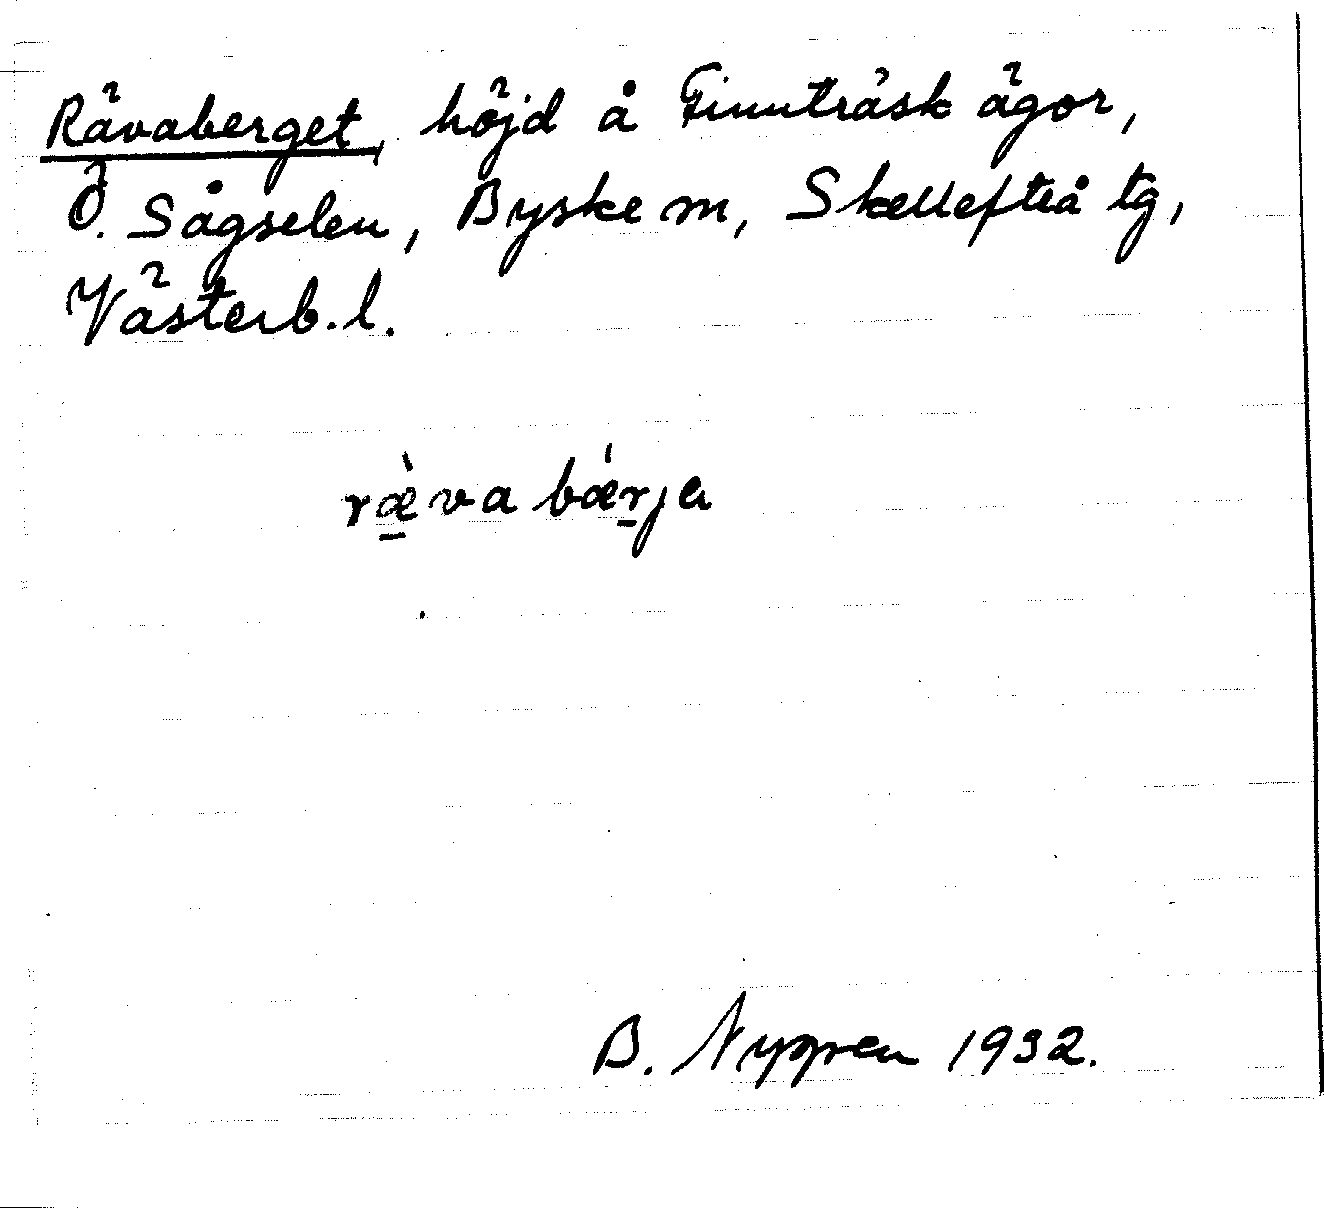 Rävaberget, höjd å Finnträsk ägor,
Ö. Sågselen, Byske sn, Skellefteå tg,
Västerb. l.
ræ̀va bǽrjer
B. Nygren 1932.